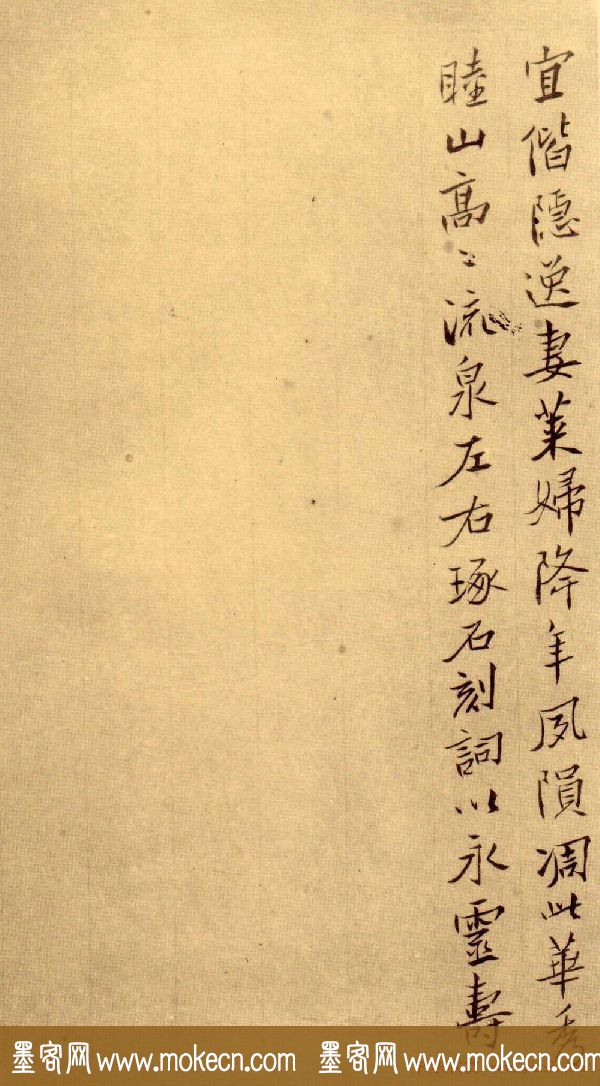 宜偕隱逸妻萊婦降年夙隕凋此華秀
睦山高〻流泉左右琢石刻詞以永靈壽
墨客网 www.mokecn.com 墨客网 www.mokecn.com